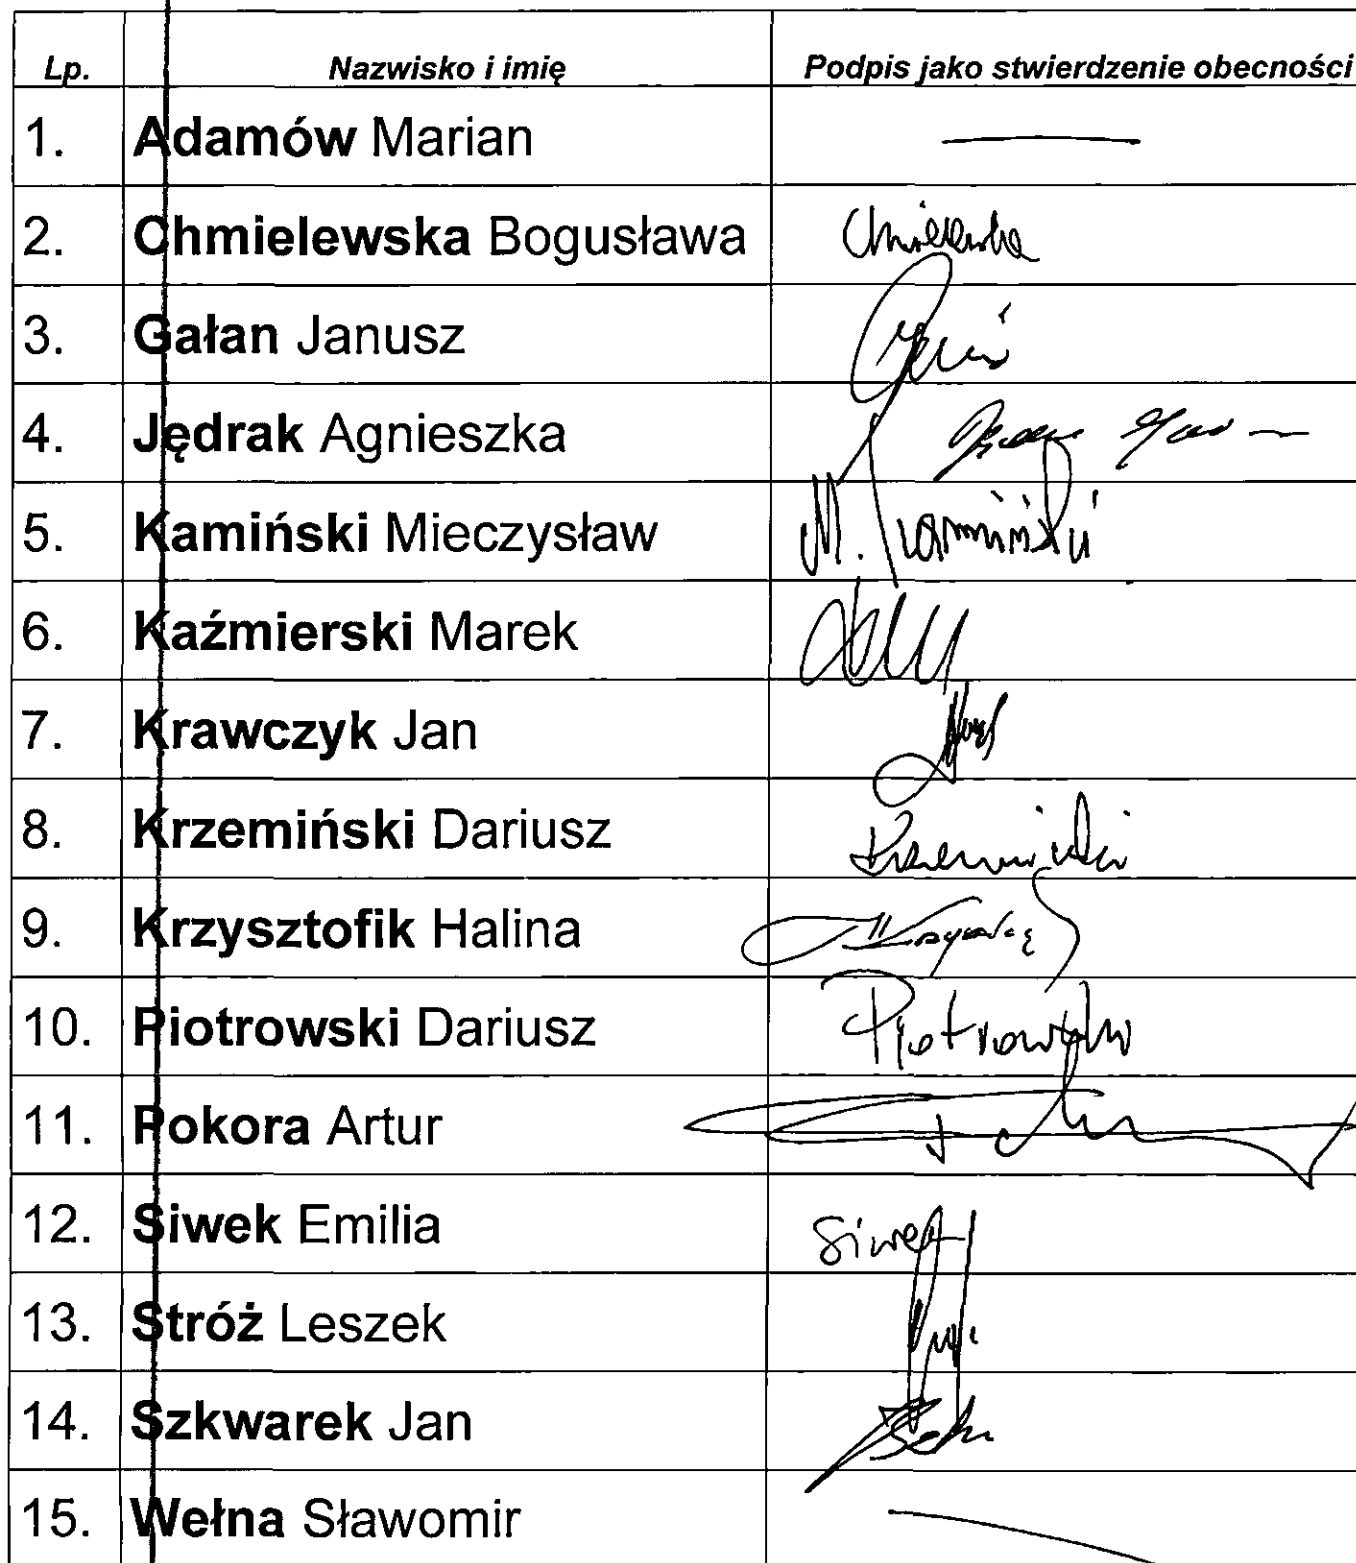 Lp. Nazwisko i imię Podpis jako stwierdzenie obecności
1. Adamów Marian —
2. Chmielewska Bogusława Chmielewska
3. Gałan Janusz
4. Jędrak Agnieszka
5. Kamiński Mieczysław M. Kamiński
6. Kaźmierski Marek
7. Krawczyk Jan
8. Krzemiński Dariusz Krzemiński
9. Krzysztofik Halina
10. Piotrowski Dariusz Piotrowski
11. Pokora Artur
12. Siwek Emilia Siwek
13. Stróż Leszek
14. Szkwarek Jan
15. Wełna Sławomir —